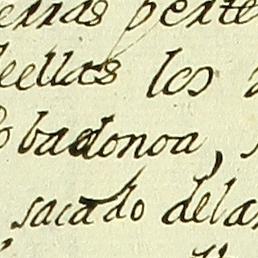 erras perte
eellas los
badonoa,
sacado dela